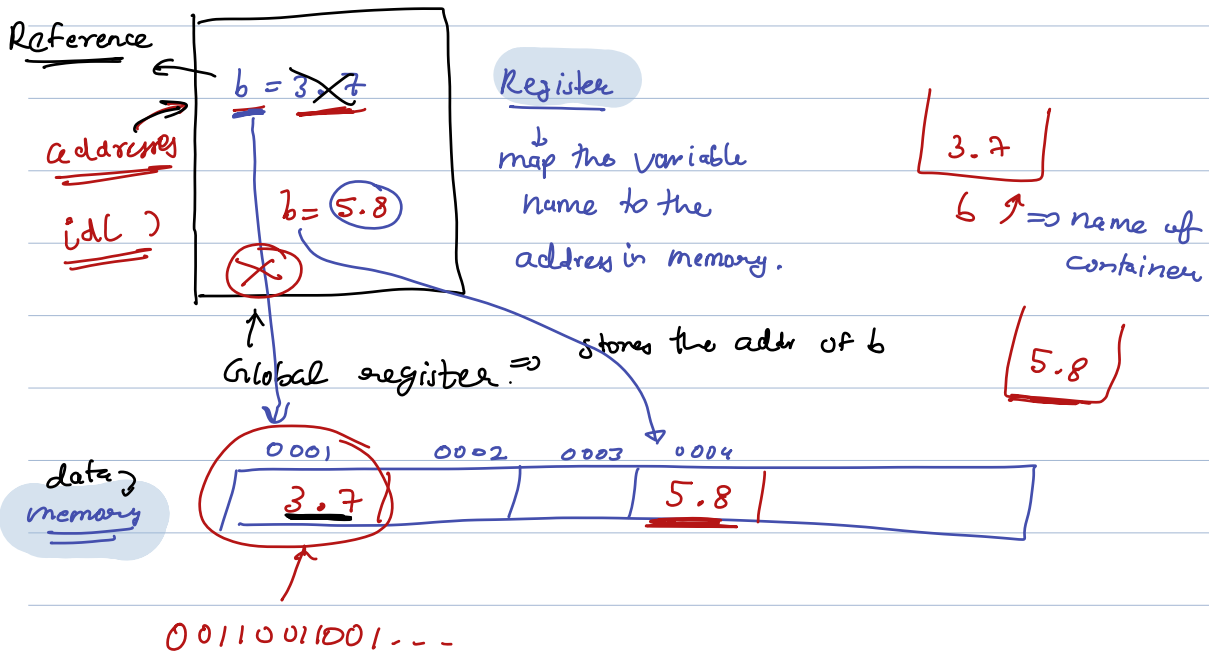 Reference
b = 3.7
addresses
id( )
b = 5.8
Register
map the variable
name to the
address in memory.
3.7
b => name of
container
5.8
Global register. =>
stores the addr of b
0001 0002 0003 0004
data
memory
3.7 5.8
00110011001. - - -